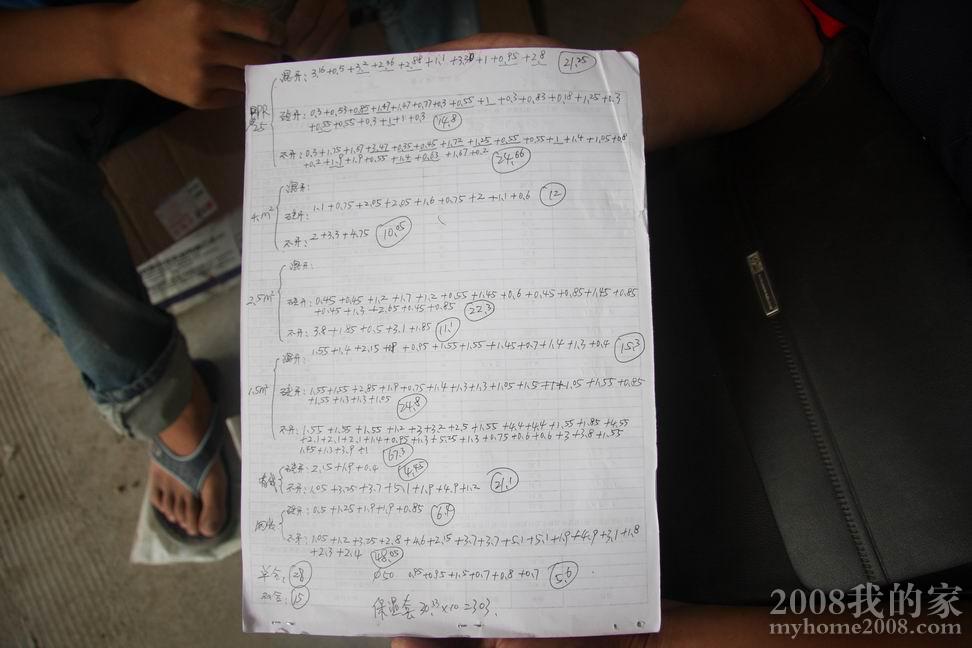 PPR 25
混开: 3.16+0.5+3.2+2.36+2.88+1.1+3.30+1+0.95+2.8 21.25
砖开: 0.3+0.53+0.85+1.47+1.67+0.77+0.3+0.55+1+0.3+0.83+0.18+1.25+0.3
+0.55+0.55+0.3+1+1+0.3 14.8
不开: 0.3+1.75+1.67+3.47+0.35+0.45+1.72+1.25+0.55+0.55+1+1.4+1.05+0.8
+0.2+1.9+1.9+0.55+1.4+0.63+1.67+0.2 24.66
4m²
混开:
砖开: 1.1+0.75+2.05+2.05+1.6+0.75+2+1.1+0.6 12
不开: 2+3.3+4.75 10.05
2.5m²
混开:
砖开: 0.45+0.45+1.2+1.7+1.2+0.55+1.45+0.6+0.45+0.85+1.45+0.85
+0.45+1.3+2.65+0.45+0.85 22.3
不开: 3.8+1.85+0.5+3.1+1.85 11.1
1.5m²
混开: 1.55+1.4+2.15+ +0.95+1.55+1.55+1.45+0.7+1.4+1.3+0.4 15.3
砖开: 1.55+1.55+2.85+1.9+0.75+1.4+1.3+1.3+1.05+1.5+1+1.05+1.55+0.85
+1.55+1.3+1.3+1.05 24.8
不开: 1.55+1.55+1.55+1.2+3+3.2+2.5+1.55+4.4+4.4+1.55+1.85+4.55
+2.1+2.1+2.1+1.4+0.95+1.3+5.25+1.3+0.75+0.6+0.6+3+3.8+1.55
1.45+1.3+3.9+1 67.3
砖开: 2.15+1.9+0.4 4.45
不开: 1.05+3.25+3.7+5.1+1.9+4.9+1.2 21.1
网线
砖开: 0.5+1.25+1.9+1.9+0.85 6.4
不开: 1.05+1.2+3.25+2.8+4.6+2.15+3.7+3.7+5.1+5.1+1.9+4.9+3.1+1.8
+2.3+2.4 48.05
单盒: 28 Ø50 0.95+0.95+1.5+0.7+0.8+0.7 5.6
双盒: 15
保温套 30.33×10=303.
2008我的家
myhome2008.com